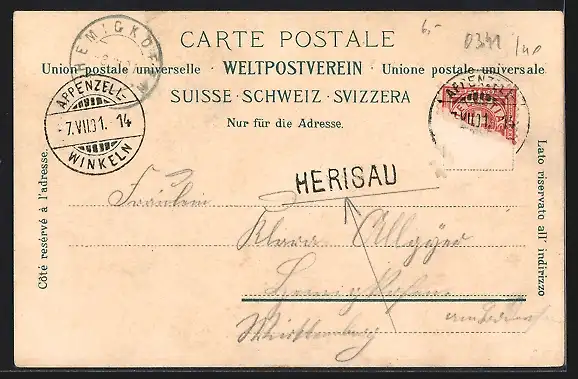 HEMIGKOFEN
6,-
CARTE POSTALE
Union postale universelle · WELTPOSTVEREIN · Unione postale universale
SUISSE · SCHWEIZ · SVIZZERA
Nur für die Adresse.
APPENZELL-
-7.VII.01. 14
WINKELN
APPENZELL-
-7.VII.01. 14
Côté reservé à l'adresse.
Lato riservato all' indirizzo
HERISAU
Fräulein
Klara Allgyer
Hemigkofen
Württemberg